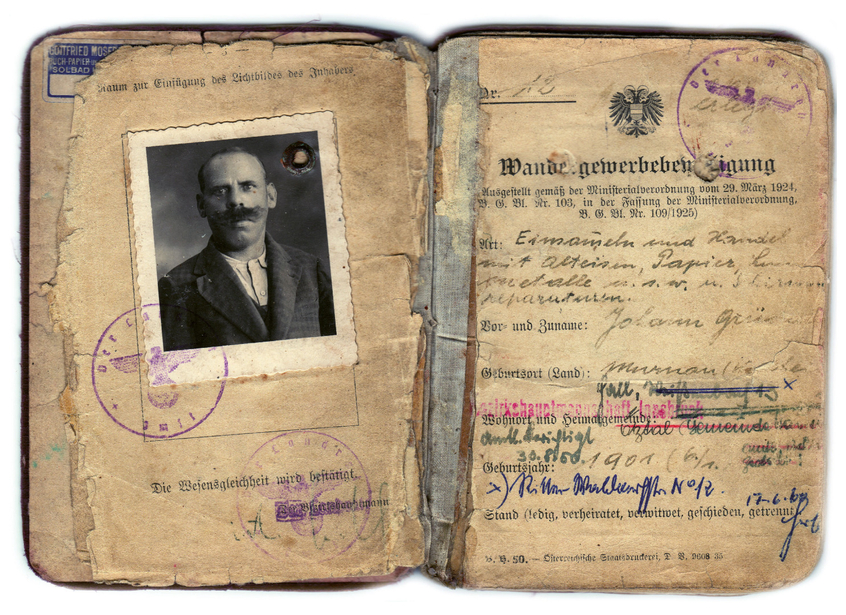 GOTTFRIED MOSER
SOLBAD
Raum zur Einfügung des Lichtbildes des Inhabers
Der Landrat
Die Wesensgleichheit wird bestätigt.
Der Landrat
Bezirkshauptmann
Nr. 12
Der Landrat
erlegt
Wandergewerbebewilligung
(Ausgestellt gemäß der Ministerialverordnung vom 29. März 1924,
B. G. Bl. Nr. 103, in der Fassung der Ministerialverordnung,
B. G. Bl. Nr. 109/1925)
Art: Einsammeln und Handel
mit Alteisen, Papier,
metalle u. s. w. u. Schirm
reparaturen.
Vor- und Zuname: Johann
Geburtsort (Land): Murnau
Hall,
Bezirkshauptmannschaft Innsbruck
Wohnort und Heimatgemeinde:
Ötztal (Gemeinde
amtl. berichtigt
30.8.50.
Geburtsjahr: 1901
x) Ritter Waldaufstr. No 12. 17.6.
Stand (ledig, verheiratet, verwitwet, geschieden, getrennt)
St. H. 50. – Österreichische Staatsdruckerei, D. V. 9608 35